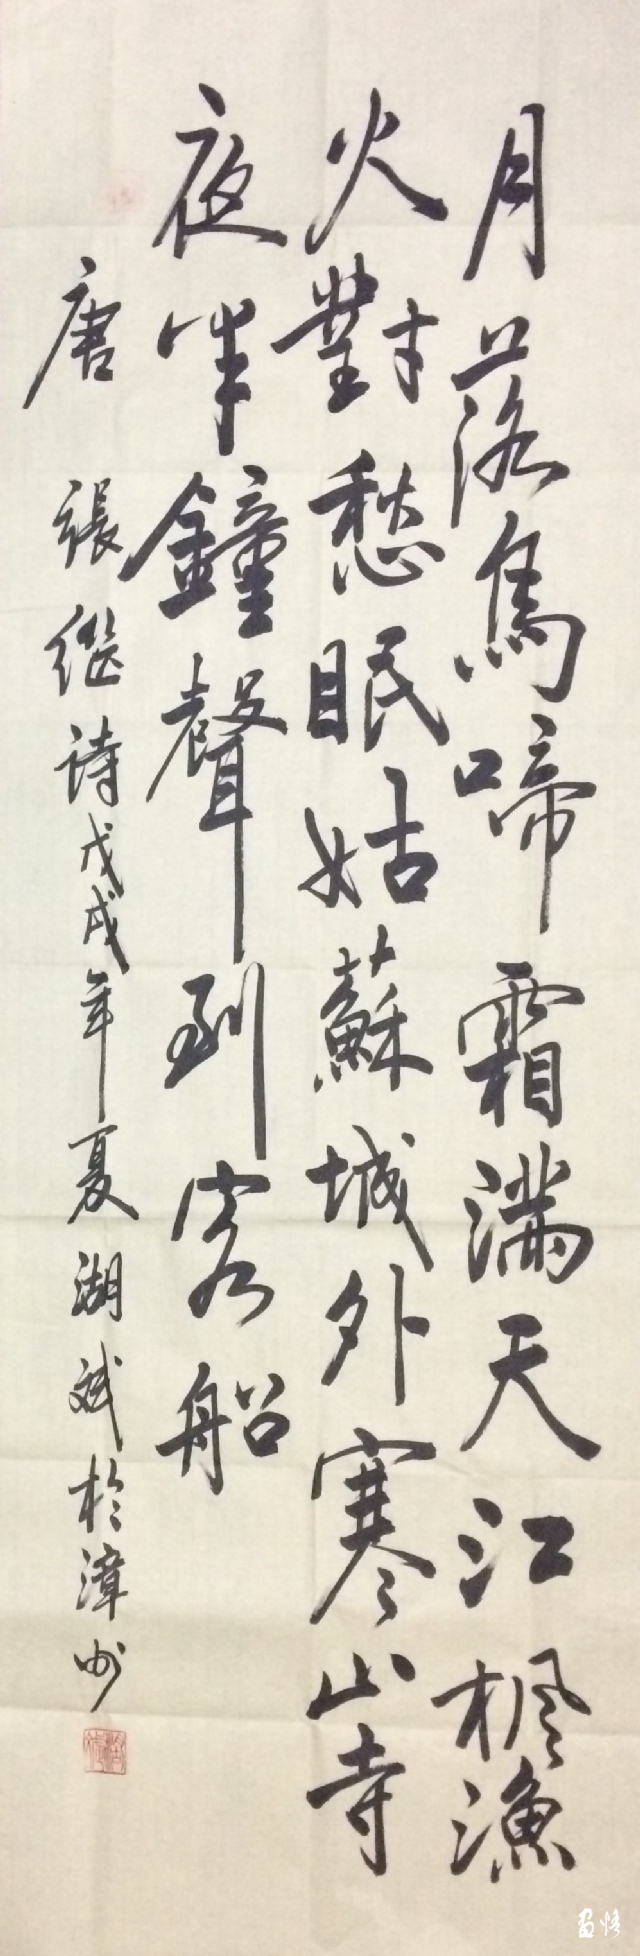 月落烏啼霜滿天江楓漁
火對愁眠姑蘇城外寒山寺
夜半鐘聲到客船
唐 張繼詩戊戌年夏湖斌於漳州